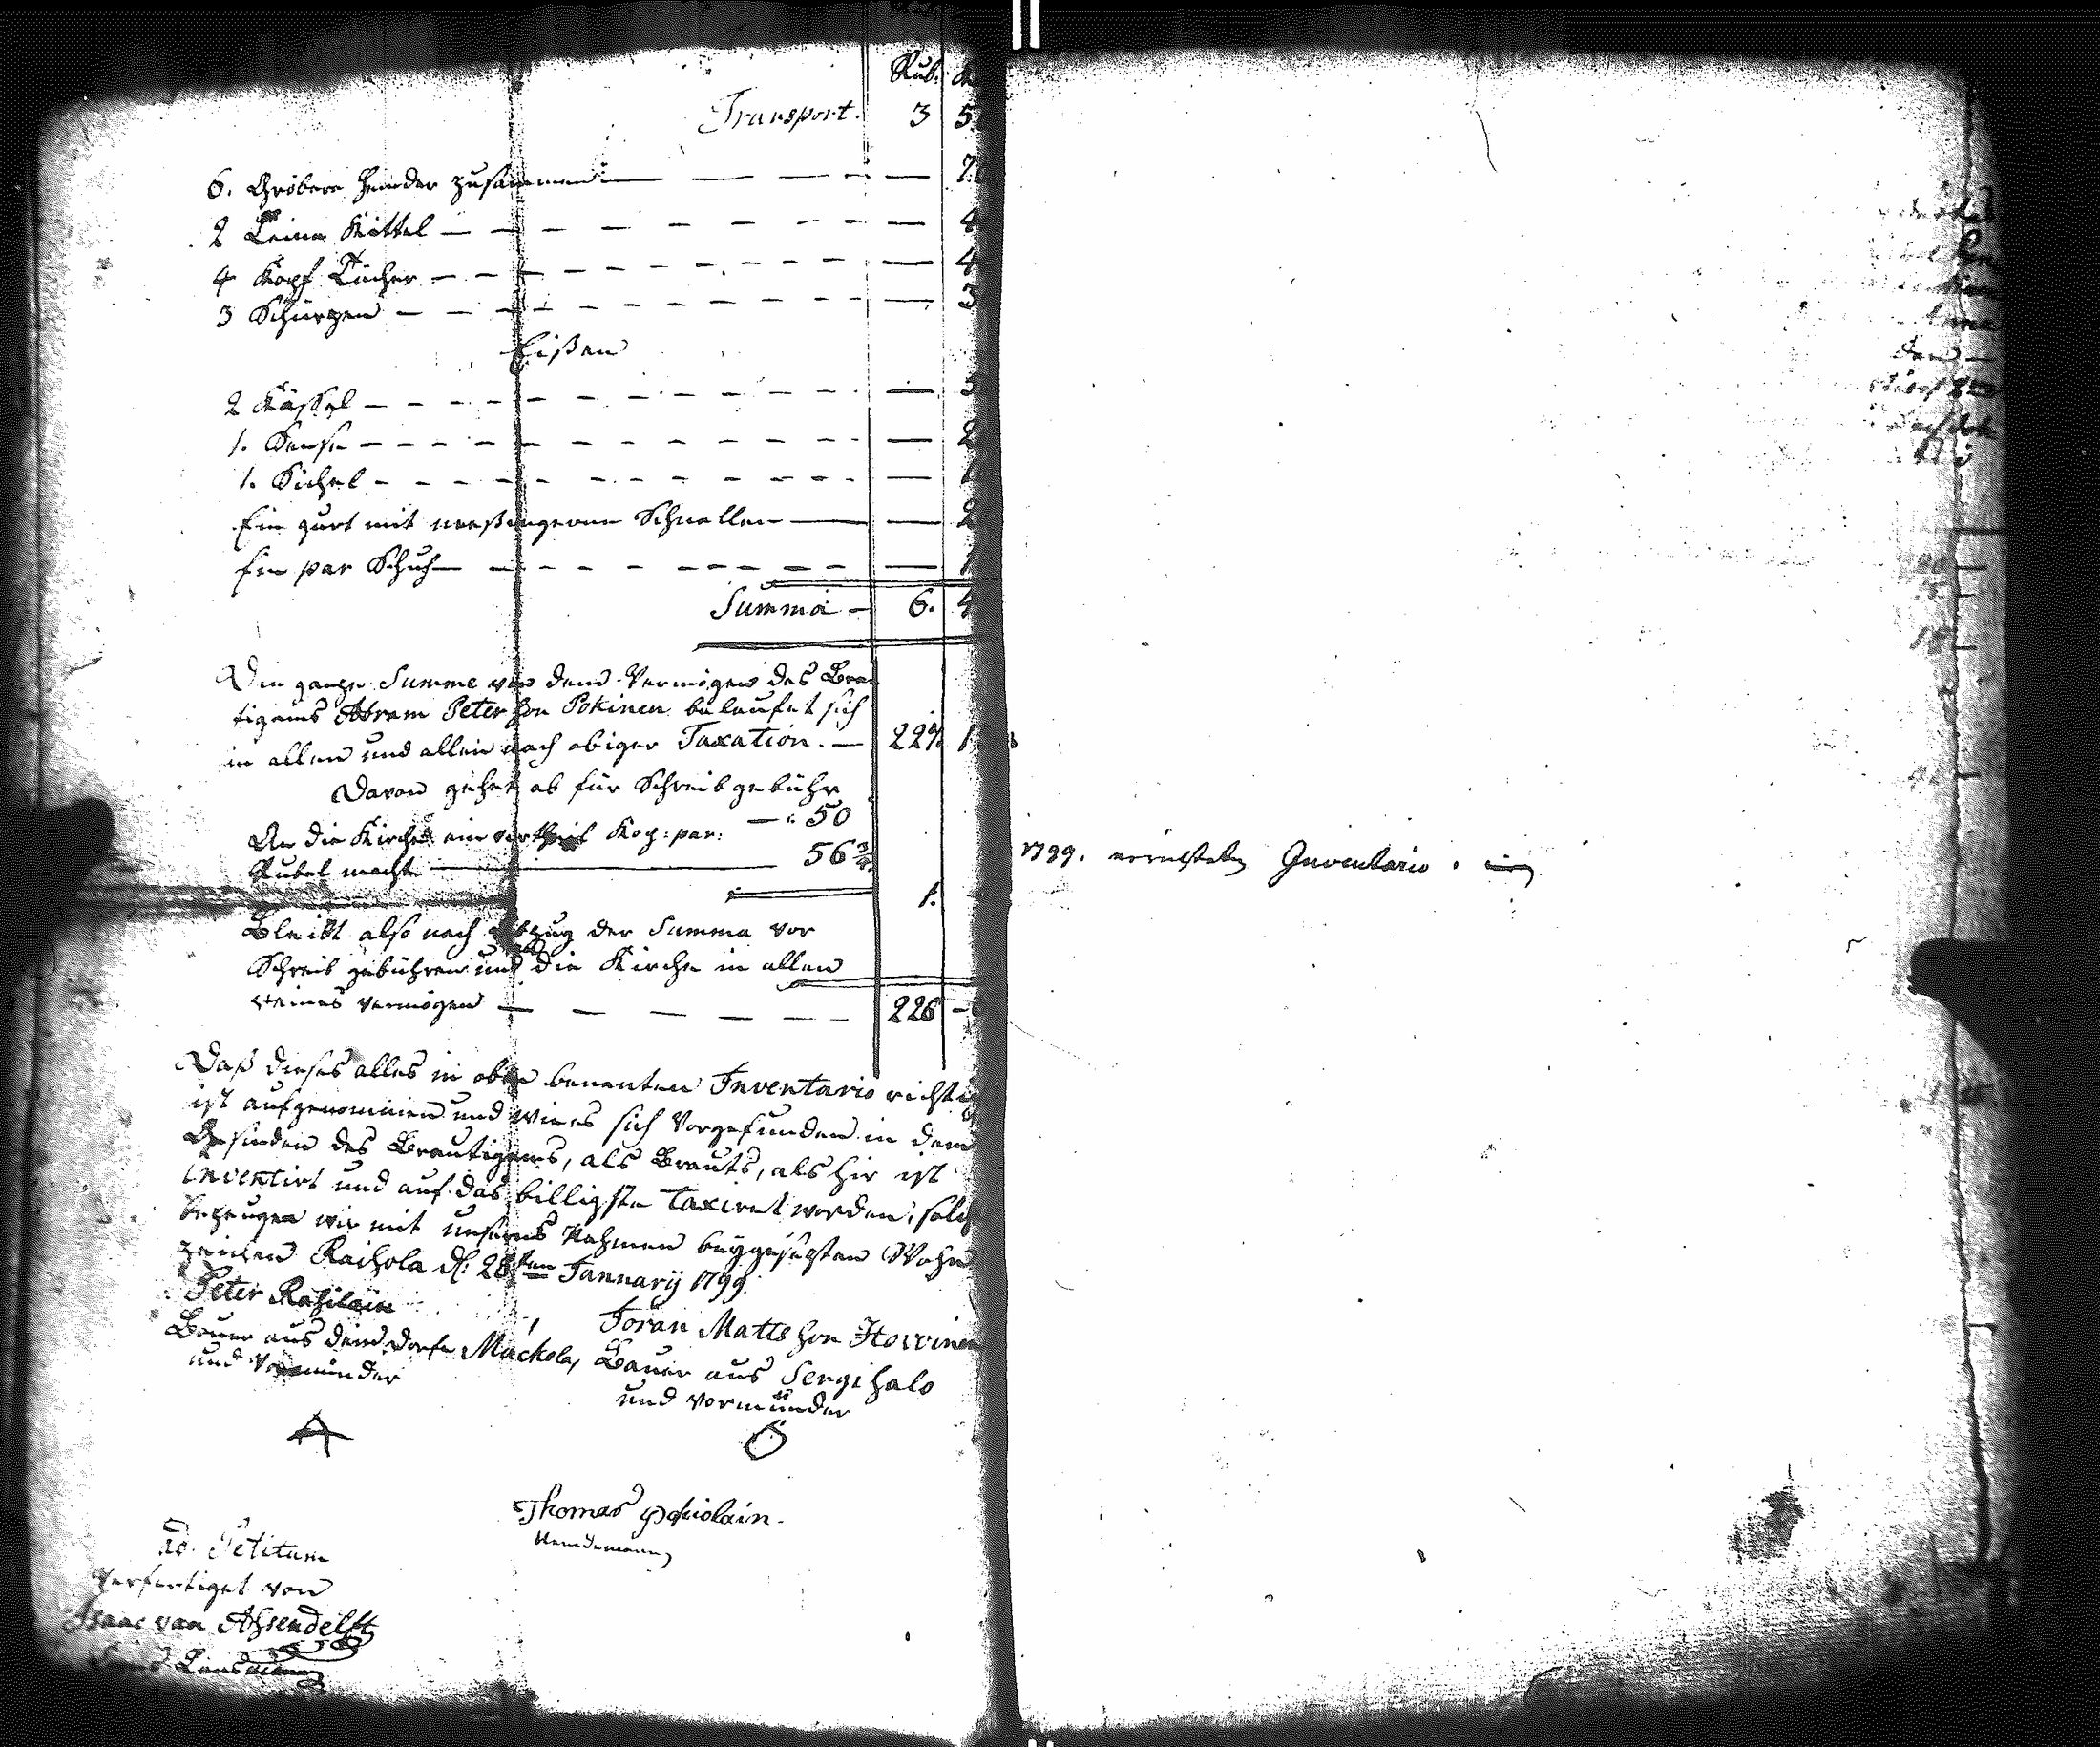 Rub.
Transport. 3 5
6. Gröbere Hemder zusammen — — 70
2 Leine Kittel — — 4
4 Kopf Tücher — — 4
3 Schürzen — — 3
Eißen
2 Kässel — — 3
1. Sense — — 2
1. Sichel — —
Ein gurt mit meßingerne Schnallen — — 2
Ein par Schuh — —
Summa — 6. 4
Die gantze Summe von dem Vermögen des Breu
tigams Abram Peterson Pokinen belaufet sich
in allem und allein nach obiger Taxation. — 227. 1
Davon gehet ab für Schreib gebühr
— : 50
An die Kirche ein vertheil Kop: par:
Rubel macht — 56 3/4
1.
Bleibt also nach Abzug der Summa vor
Schreib gebühren und die Kirche in allen
reines Vermögen — — 226 —
Daß dieses alles in oben benanten Inventario richtig
ist aufgenommen und wie es sich vorgefunden in dem
Gesinden des Breutigams, als Brauts, als hir ist
Inventirt und auf das billigste Taxiret worden, solch
bezeugen wir mit unsern Nahmen beygesetzten
zeichen Raihola d: 28ten Januarij 1799.
Peter
Bauer aus dem Dorfe Mückola,
und Vormünder
Joran Mattson Howinen
Bauer aus Sergihalo
und vormünder
Thomas
ad. Petitum
Verfertiget von
Isaac van Assendelft
1799. errichteten Inventario.